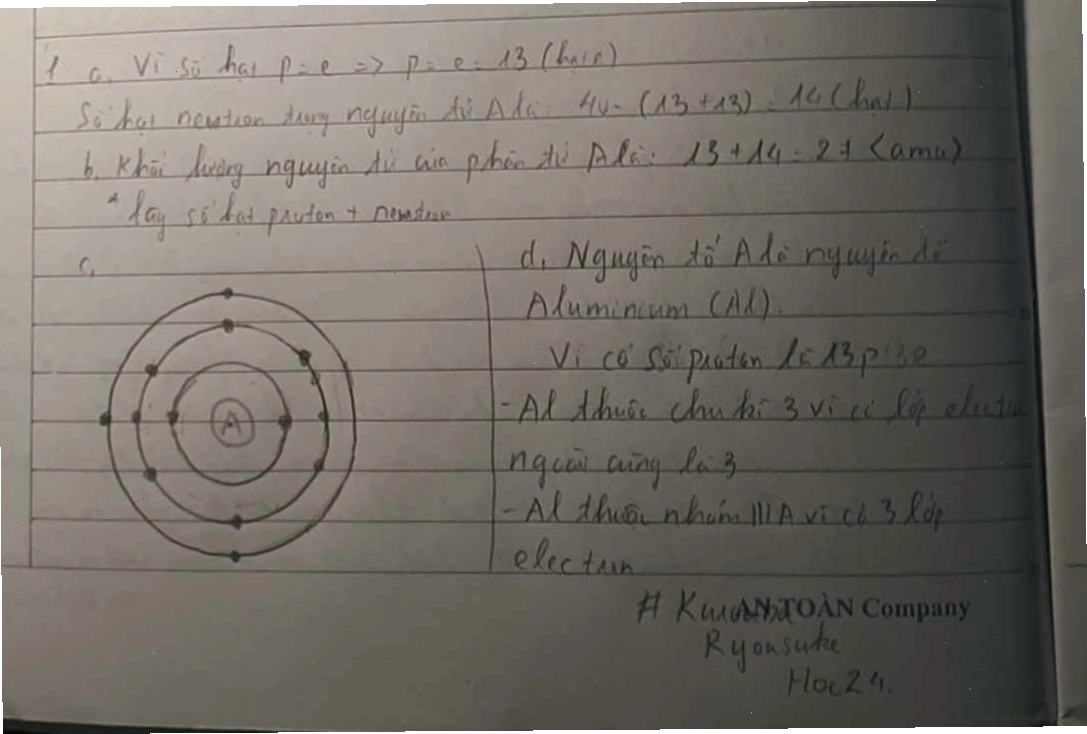 1 a. Vì số hạt p = e => p = e = 13 (hạt)
Số hạt newtron trong nguyên tử A là: 40 - (13 + 13) = 14 (hạt)
b. Khối lượng nguyên tử của phân tử A là: 13 + 14 = 27 (amu)
* lấy số hạt proton + newtron
c,
A
d, Nguyên tố A là nguyên tố
Aluminium (Al).
Vì có số proton là 13p
- Al thuộc chu kì 3 vì có lớp electron
ngoài cùng là 3
- Al thuộc nhóm IIIA vì có 3 lớp
electron
AN TOÀN Company
#
Ryousuke
Hoc24.